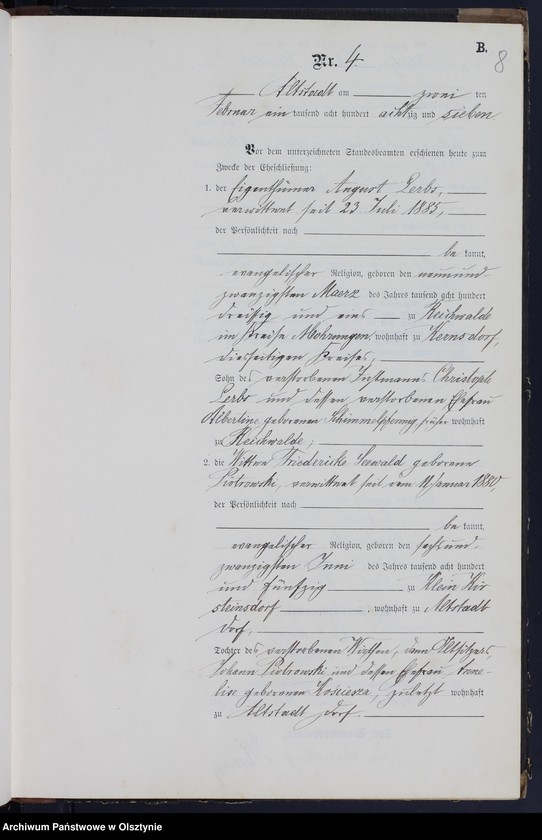 B.
8
Nr. 4.
Altstadt am zwei ten
Februar ein tausend acht hundert achtzig und sieben
Vor dem unterzeichneten Standesbeamten erschienen heute zum
Zwecke der Eheschließung:
1. der Eigenthümer August Lerbs,
verwittwet seit 23 Juli 1885,
der Persönlichkeit nach
be kannt,
evangelischer Religion, geboren den neunund
zwanzigsten Maerz des Jahres tausend acht hundert
dreißig und eins zu Reichwalde
im Kreise Mohrungen, wohnhaft zu Kernsdorf,
diesseitigen Kreises,
Sohn des verstorbenen Instmanns Christoph
Lerbs und dessen verstorbenen Ehefrau
Albertine geborenen Schimmelpfennig früher wohnhaft
zu Reichwalde;
2. die Wittwe Friedericke Seewald geborene
Piotrowski, verwittwet seit dem 11 Januar 1880,
der Persönlichkeit nach
be kannt,
evangelischer Religion, geboren den sechsund-
zwanzigsten Juni des Jahres tausend acht hundert
und fünfzig zu Klein Kir
steinsdorf, wohnhaft zu Altstadt
Dorf,
Tochter des verstorbenen Wirthen, dann Altsitzers,
Johann Piotrowski und dessen Ehefrau
geborenen Kosciesza, zuletzt wohnhaft
zu Altstadt Dorf.
Archiwum Państwowe w Olsztynie